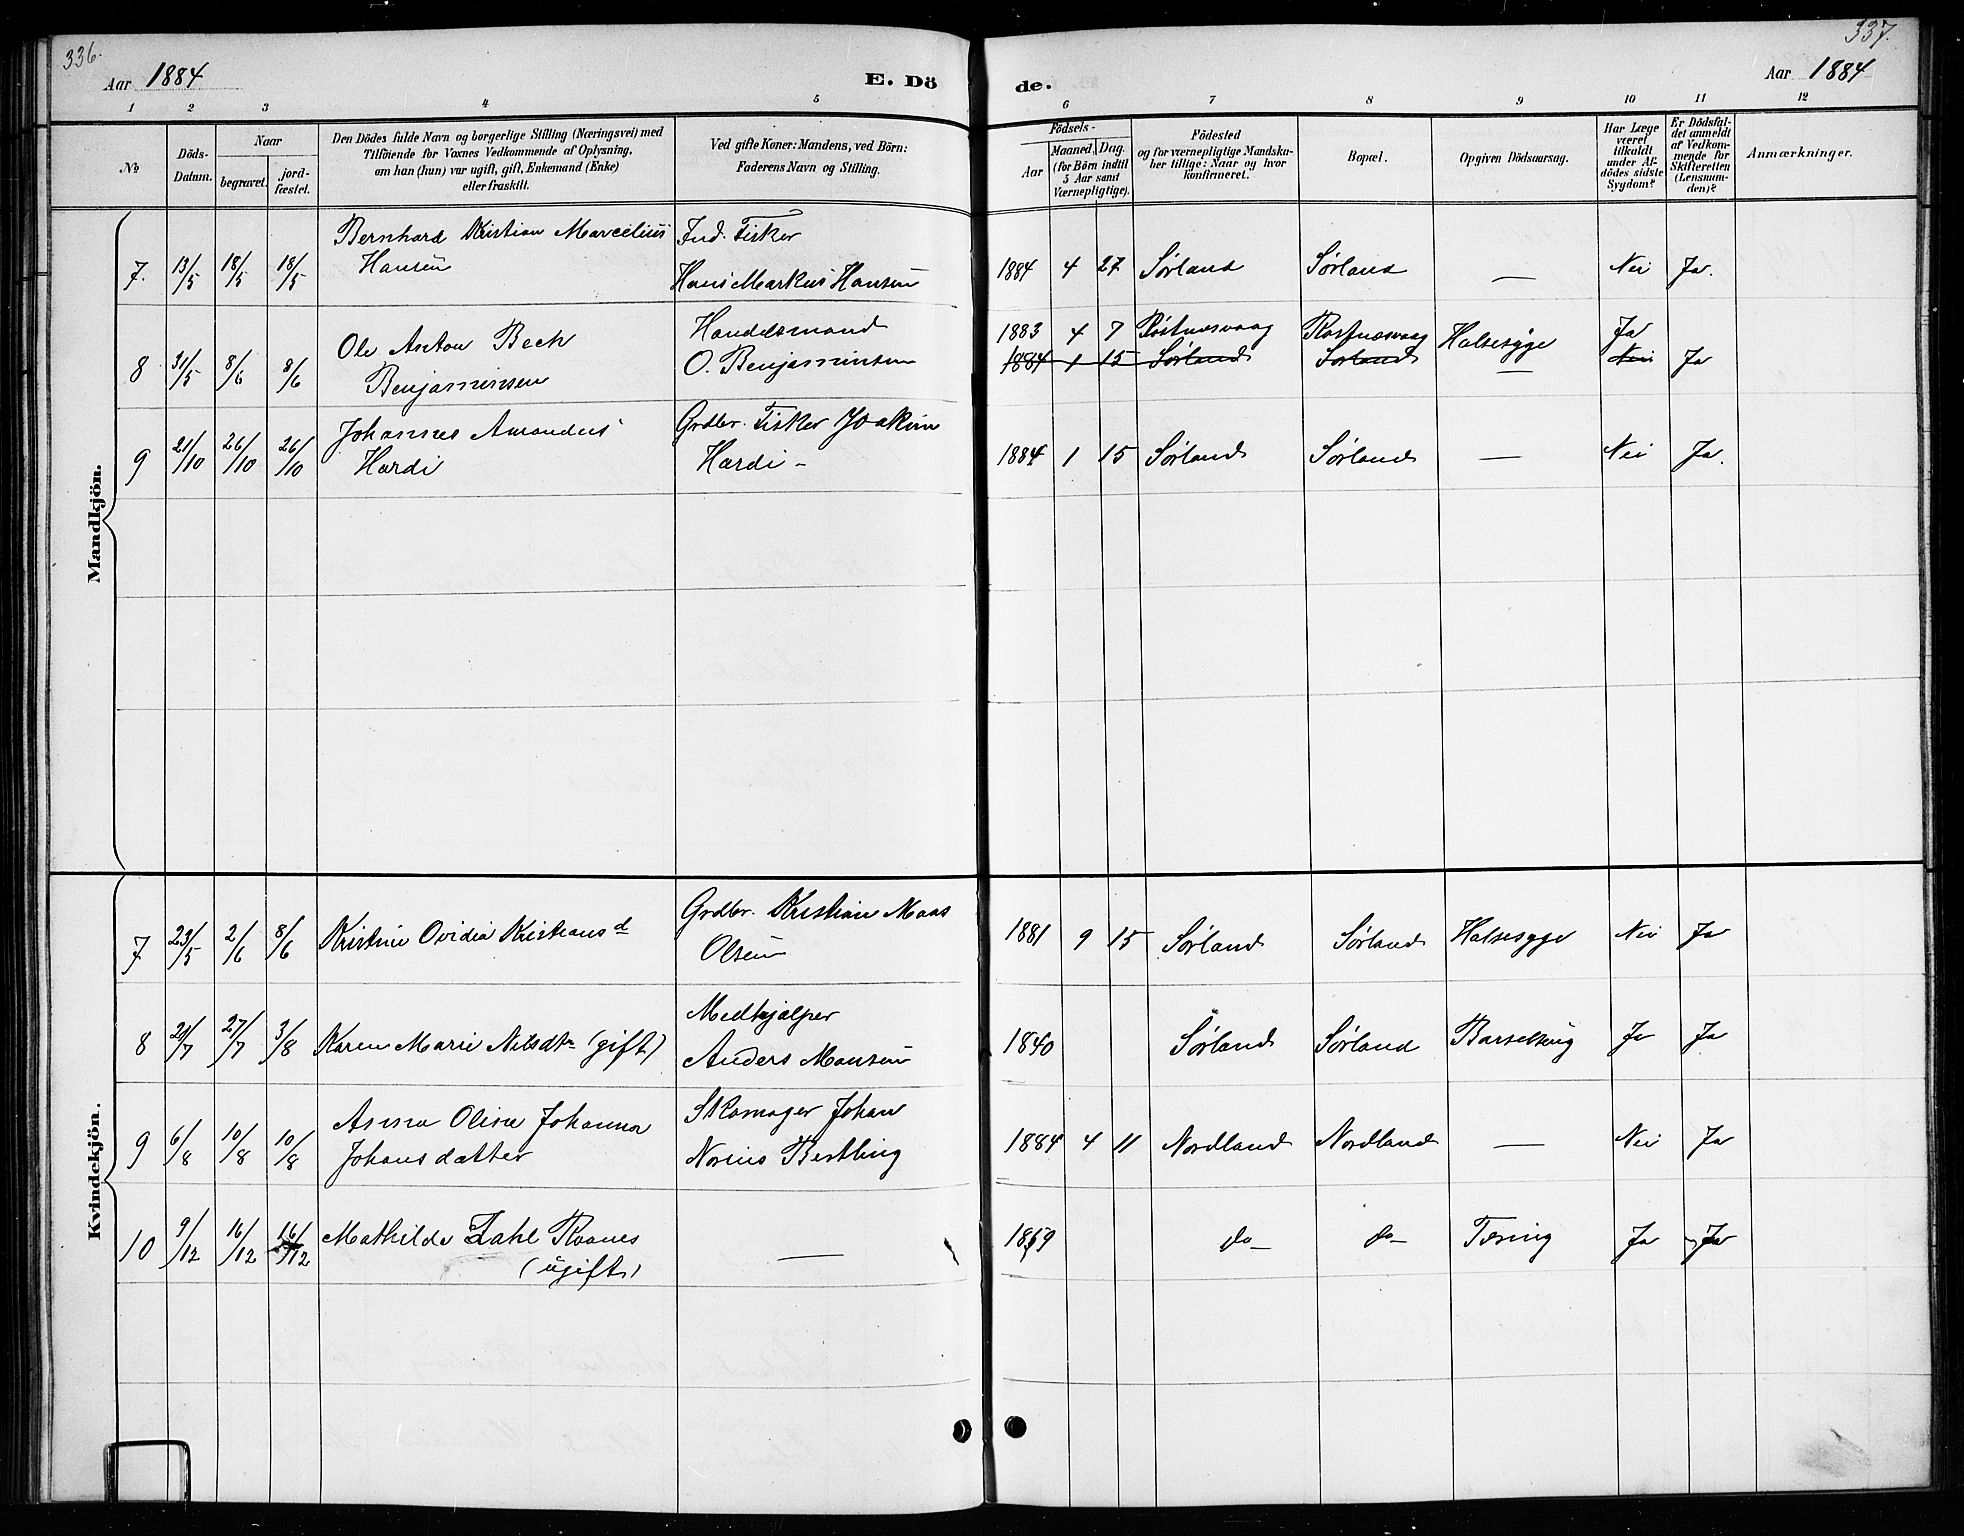 336.
337.
Aar 1884
E. Dö
de.
Aar 1884
1 2 3 4 5 6 7 8 9 10 11 12
No
Döds-
Datum.
Naar
begravet.
jord-
fæstet.
Den Dödes fulde Navn og borgerlige Stilling (Næringsvei) med
Tilföiende for Voxnes Vedkommende af Oplysning,
om han (hun) var ugift, gift, Enkemand (Enke)
eller fraskilt.
Ved gifte Koner: Mandens, ved Börn:
Faderens Navn og Stilling.
Födsels-
Aar
Maaned, Dag.
(for Börn indtil
5 Aar samt
Værnepligtige).
Födested
og for værnepligtige Mandska-
ber tillige: Naar og hvor
konfirmeret.
Bopæl.
Opgiven Dödsaarsag.
Har Læge
været
tilkaldt
under Af-
dödes sidste
Sygdom?
Er Dödsfal-
det anmeldt
af Vedkom-
mende for
Skifteretten
(Lensman-
den)?
Anmærkninger.
Mandkjön.
7. 13/5 18/5 18/5 Bernhard Kristian Marcelius Hansen Ind. Fisker Hans Markus Hansen 1884 4 27 Sørland Sørland — Nei Ja.
8 31/5 8/6 8/6 Ole Anton Bech Benjaminsen Handelsmand O. Benjaminsen 1883 4 7 Røstnæsvaag Røstnæsvaag Halsesyge Ja
1884 1 15 Sørland Sørland — Nei Ja
9 21/10 26/10 26/10 Johannes Amandus Hardi Grdbr. Fisker Joakim Hardi - 1884 1 15 Sørland Sørland — Nei Ja.
Kvindekjön.
7 23/5 2/6 8/6 Kristine Ovidia Kristiansd Grdbr. Kristian Maas Olsen 1881 9 15 Sørland Sørland Halsesyge Nei Ja
8 21/7 27/7 3/8 Karen Marie Nilsdtr (gift) Medhjælper Anders Monsen 1840 Sørland Sørland Barselseng Ja Ja
9 6/8 10/8 10/8 Anna Oline Johanna Johansdatter Skomager Johan Norius Bertling 1884 4 11 Nordland Nordland — Nei Ja
10 9/12 16/12 16/12 Mathilde Zahl Roanes (ugift) — 1859 do- do- Tæring Ja Ja